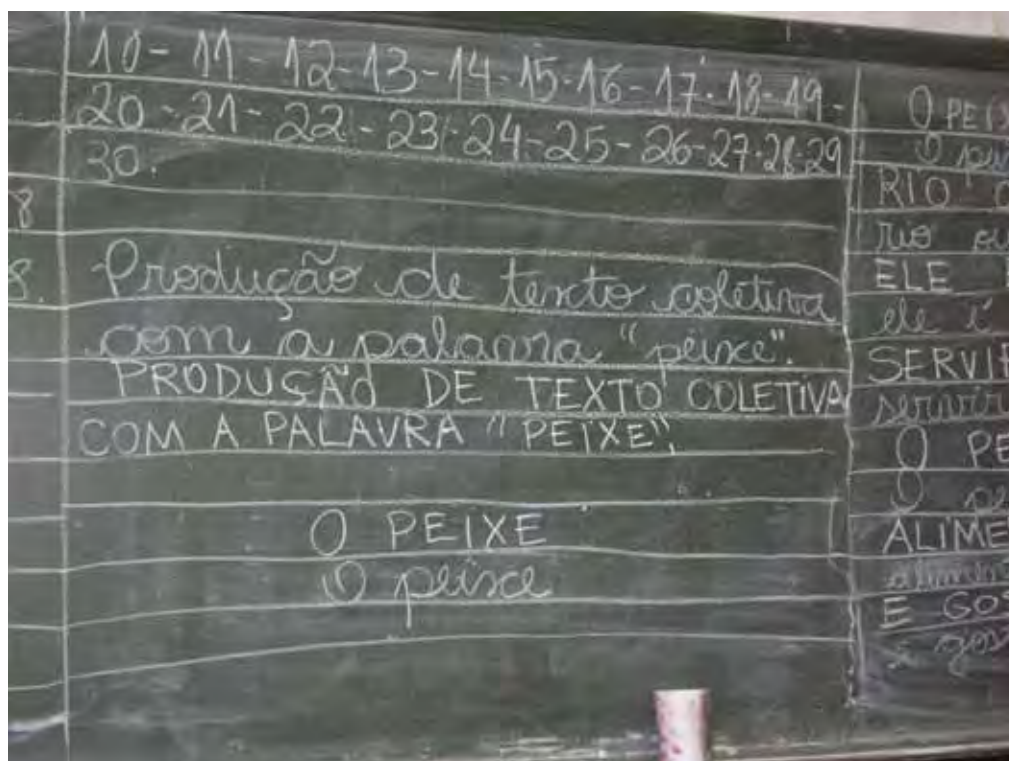 8
8.
10-11-12-13-14-15-16-17-18-19-
20-21-22-23-24-25-26-27-28-29
30.
Produção de texto coletiva
com a palavra "peixe".
PRODUÇÃO DE TEXTO COLETIVA
COM A PALAVRA "PEIXE".
O PEIXE
O peixe
O PEIX
O
RIO
rio ou
ELE
ele é
SERVIR
servir
O PE
O pe
ALIME
alimen
E GOS
e gos